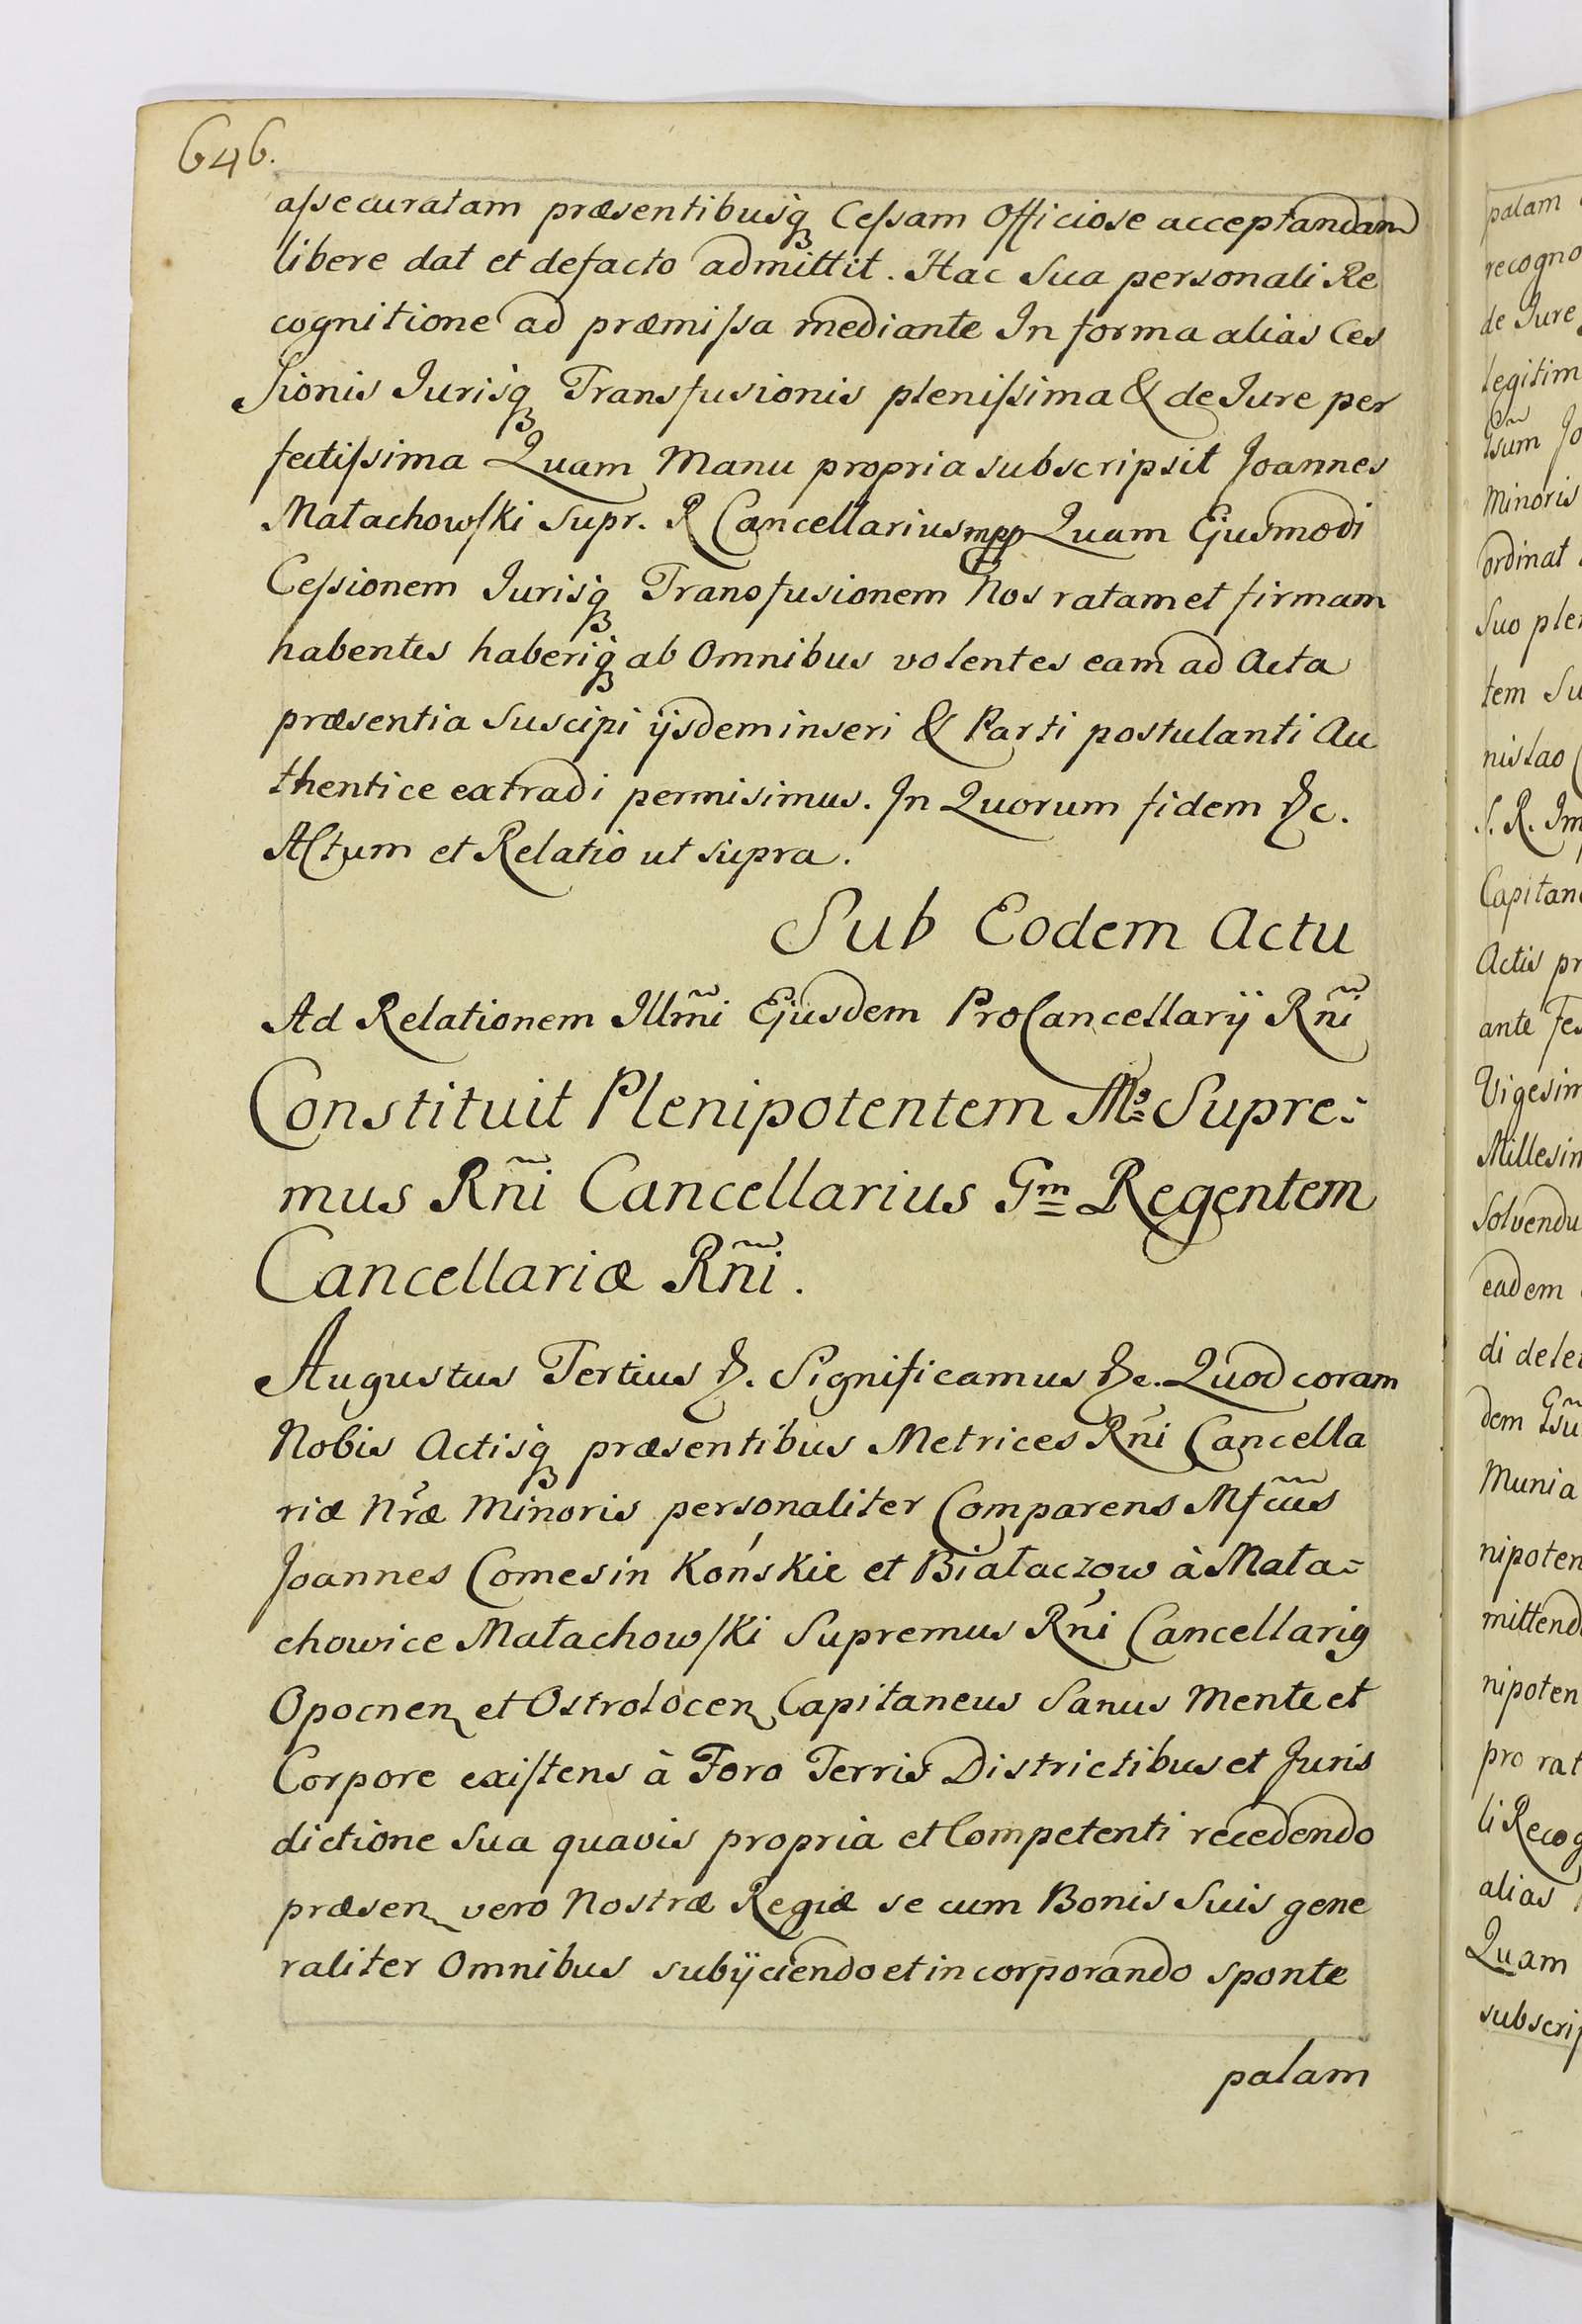 646.
assecuratam præsentibusq̃ Cessam Officiose acceptandam
libere dat et defacto admittit. Hac Sua personali Re
cognitione ad præmissa mediante In forma alias Ces
sionis Jurisq̃ Transfusionis plenissima & de Jure per
fectissima Quam Manu propria subscripsit Joannes
Małachowski Supr. R Cancellarius mpp Quam Ejusmodi
Cessionem Jurisq̃ Transfusionem Nos ratam et firmam
habentes haberiq̃ ab Omnibus volentes eam ad Acta
præsentia Suscipi ijsdem inseri & Parti postulanti Au
thentice extradi permisimus. In Quorum fidem &c.
Actum et Relatio ut supra.
Sub Eodem Actu
Ad Relationem Illm̃i Ejusdem ProCancellarij Rñi
Constituit Plenipotentem Ms Supre:
mus Rñi Cancellarius Gm Regentem
Cancellariæ Rñi.
Augustus Tertius &. Significamus &c. Quod coram
Nobis Actisq̃ præsentibus Metrices Rñi Cancella
riæ Nræ Minoris personaliter Comparens Mfcus
Joannes Comes in Końskie et Białaczow à Mała=
chowice Małachowski Supremus Rñi Cancellarig
Opocnen et Ostrołocen Capitaneus Sanus Mente et
Corpore existens à Foro Terris Districtibus et Juris
dictione Sua quavis propria et Competenti recedendo
præsen vero Nostræ Regiæ se cum Bonis Suis gene
raliter Omnibus subijciendo et incorporando sponte
palam
palam
recogno
de Jure
legitim
Minoris
ordinat
Suo ple
tem Su
nislao
S. R. Im
Capitan
Actis pr
ante Fe
Vigesim
Millesim
Solvendu
eadem
di dele
dem
Munia
nipoten
mittend
nipoten
pro rat
li Recog
alias
Quam
subscrip